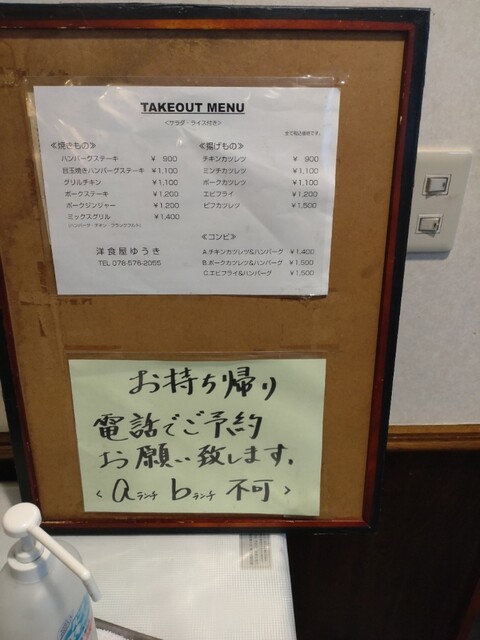 TAKEOUT MENU
<サラダ・ライス付き>
全て税込価格です。
≪焼きもの≫
ハンバーグステーキ ¥ 900
目玉焼きハンバーグステーキ ¥1,100
グリルチキン ¥1,100
ポークステーキ ¥1,200
ポークジンジャー ¥1,200
ミックスグリル ¥1,400
≪揚げもの≫
チキンカツレツ ¥ 900
ミンチカツレツ ¥1,100
ポークカツレツ ¥1,100
エビフライ ¥1,200
ビフカツレツ ¥1,500
≪コンビ≫
A.チキンカツレツ&ハンバーグ ¥1,400
B.ポークカツレツ&ハンバーグ ¥1,500
C.エビフライ&ハンバーグ ¥1,500
洋食屋ゆうき
TEL 078-576-2055
お持ち帰り
電話でご予約
お願い致します。
<aランチ bランチ 不可>